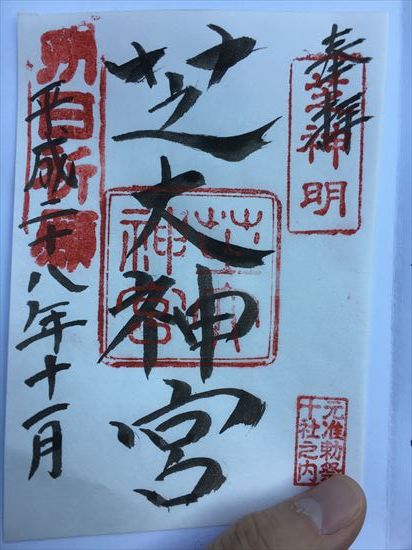 奉拝
神明
元准勅祭
十社之内
芝大神宮
芝大
神宮
平成二十八年十一月